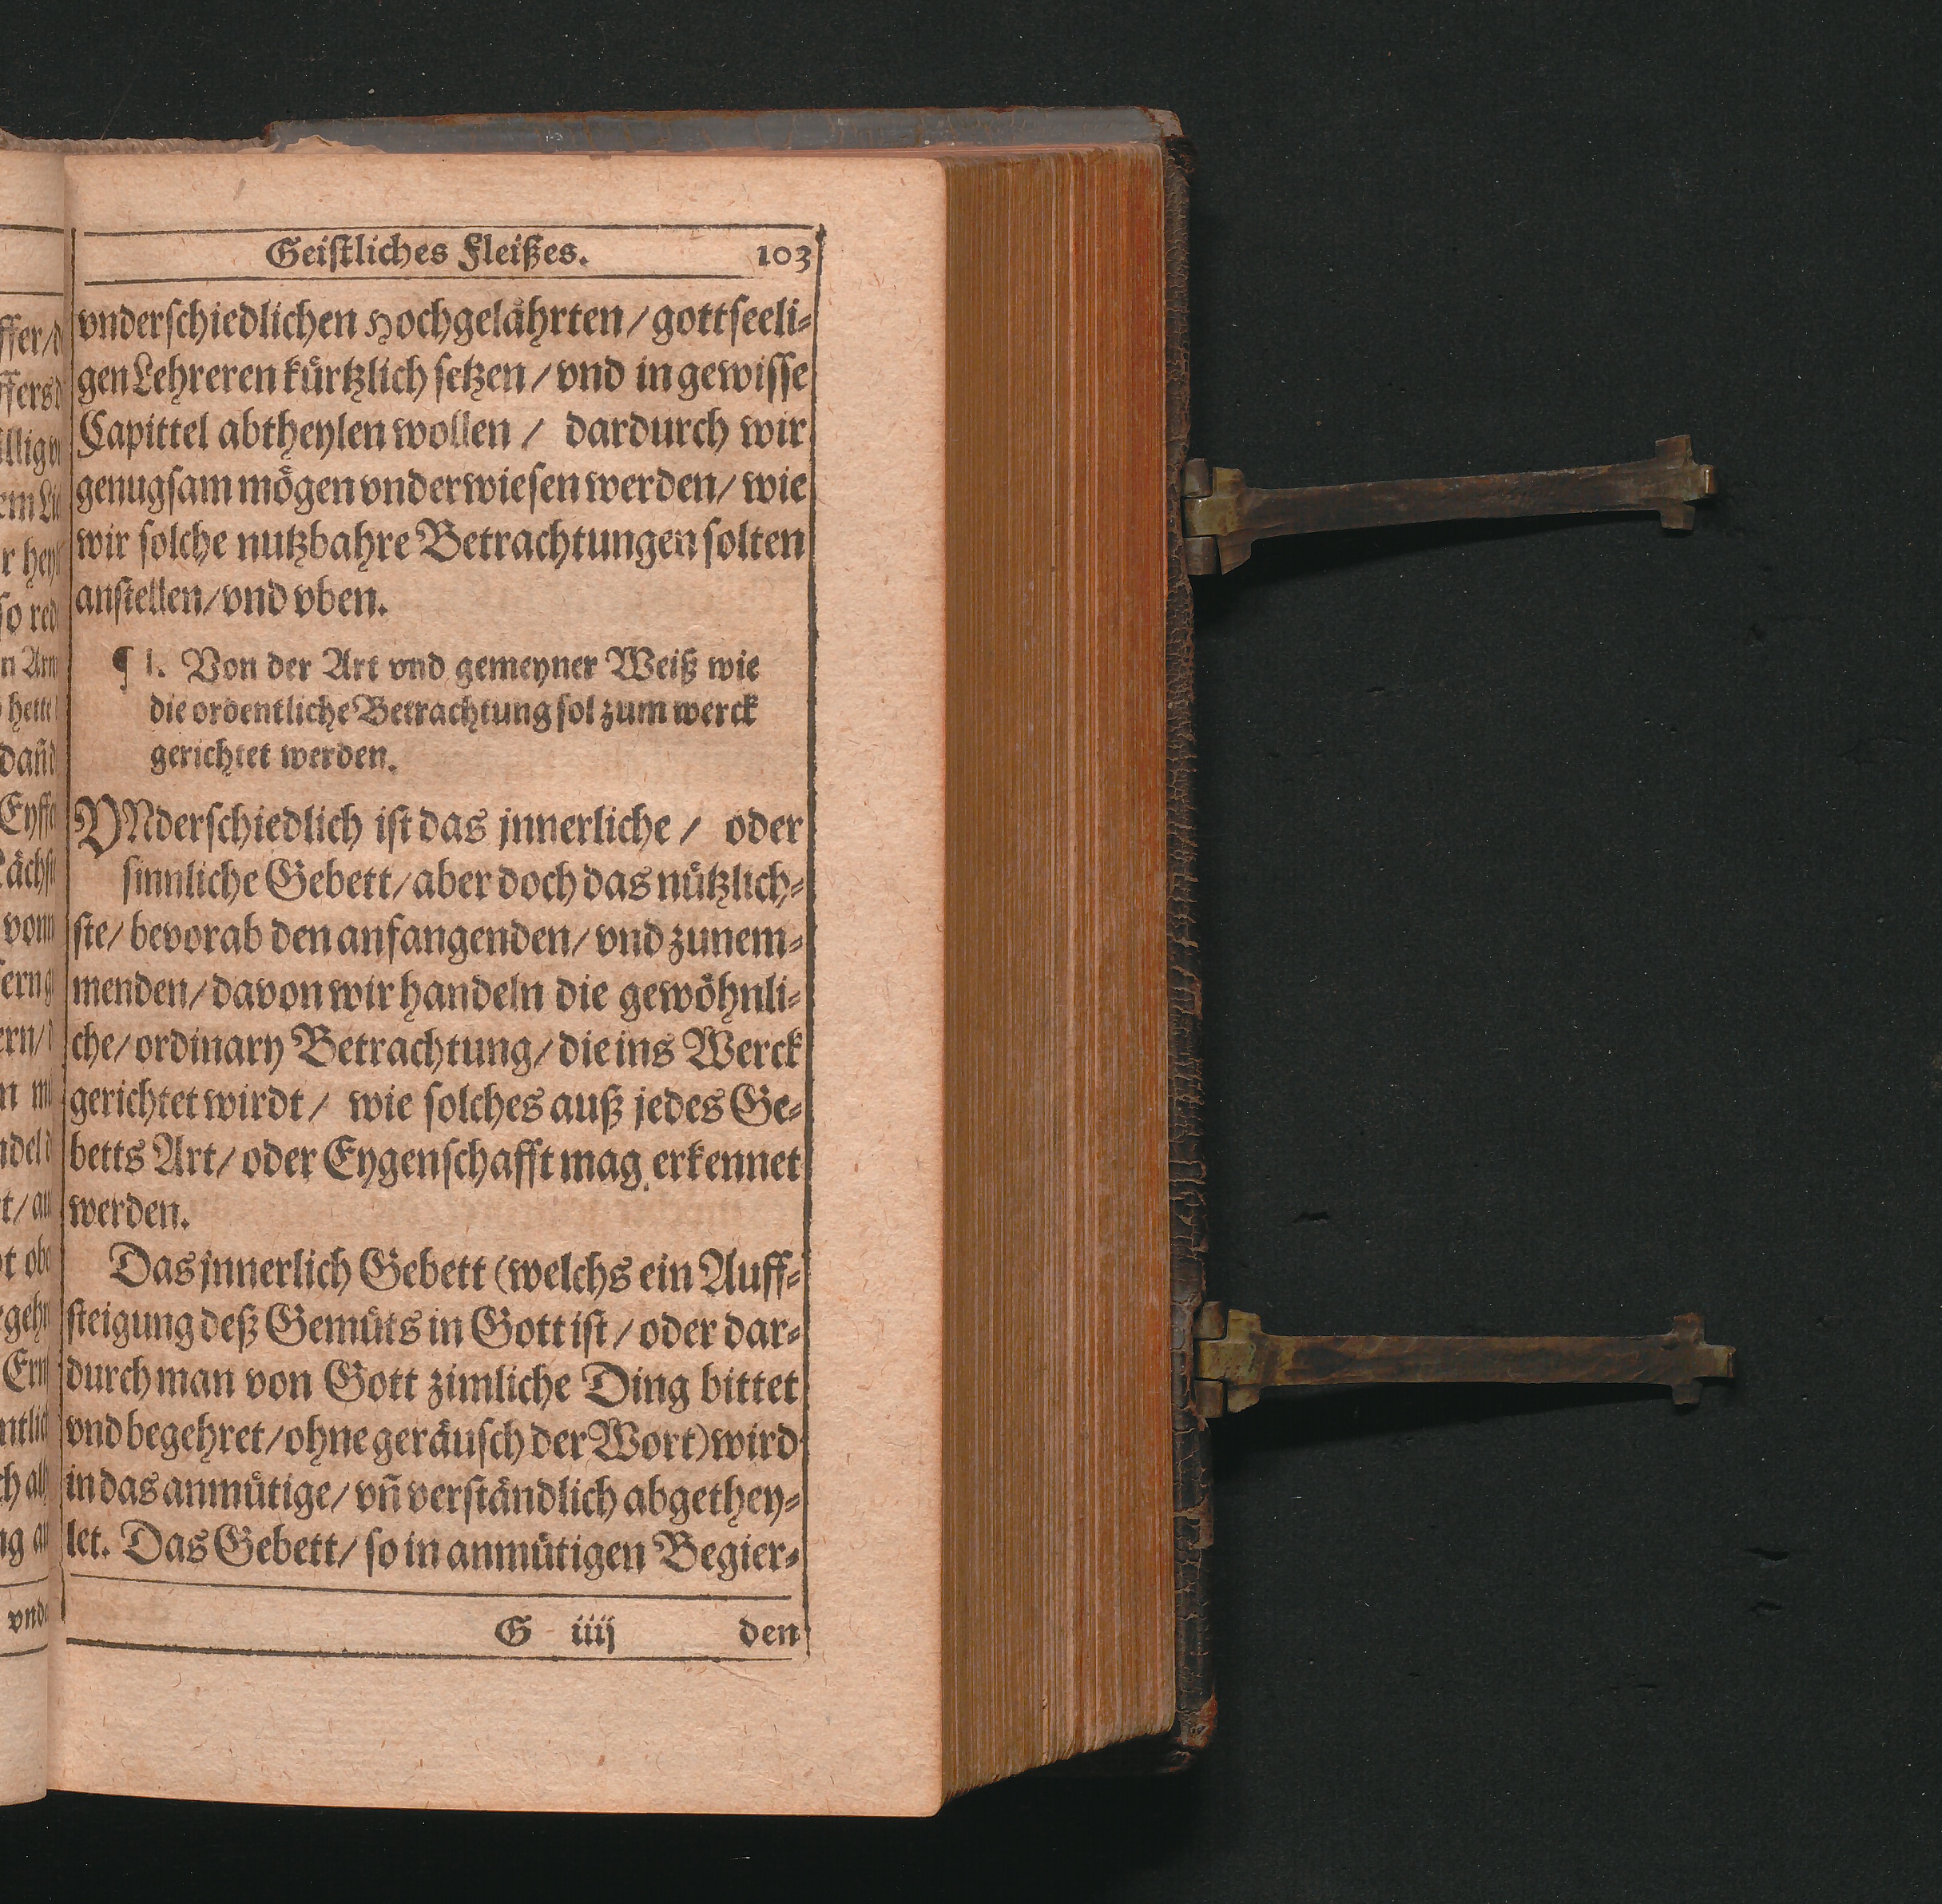 Geistliches Fleißes. 103
vnderschiedlichen hochgelährten / gottseeli-
gen Lehreren kürtzlich setzen / vnd in gewisse
Capittel abtheylen wollen / dardurch wir
genugsam mögen vnderwiesen werden / wie
wir solche nutzbahre Betrachtungen solten
anstellen / vnd vben.
¶ 1. Von der Art vnd gemeyner Weiß wie
die ordentliche Betrachtung sol zum werck
gerichtet werden.
VNderschiedlich ist das jnnerliche / oder
sinnliche Gebett / aber doch das nützlich-
ste / bevorab den anfangenden / vnd zunem-
menden / davon wir handeln die gewöhnli-
che / ordinary Betrachtung / die ins Werck
gerichtet wirdt / wie solches auß jedes Ge-
betts Art / oder Eygenschafft mag erkennet
werden.
Das jnnerlich Gebett (welchs ein Auff-
steigung deß Gemüts in Gott ist / oder dar-
durch man von Gott zimliche Ding bittet
vnd begehret / ohne geräusch der Wort) wird
in das anmütige / vñ verständlich abgethey-
let. Das Gebett / so in anmütigen Begier-
G iiij den